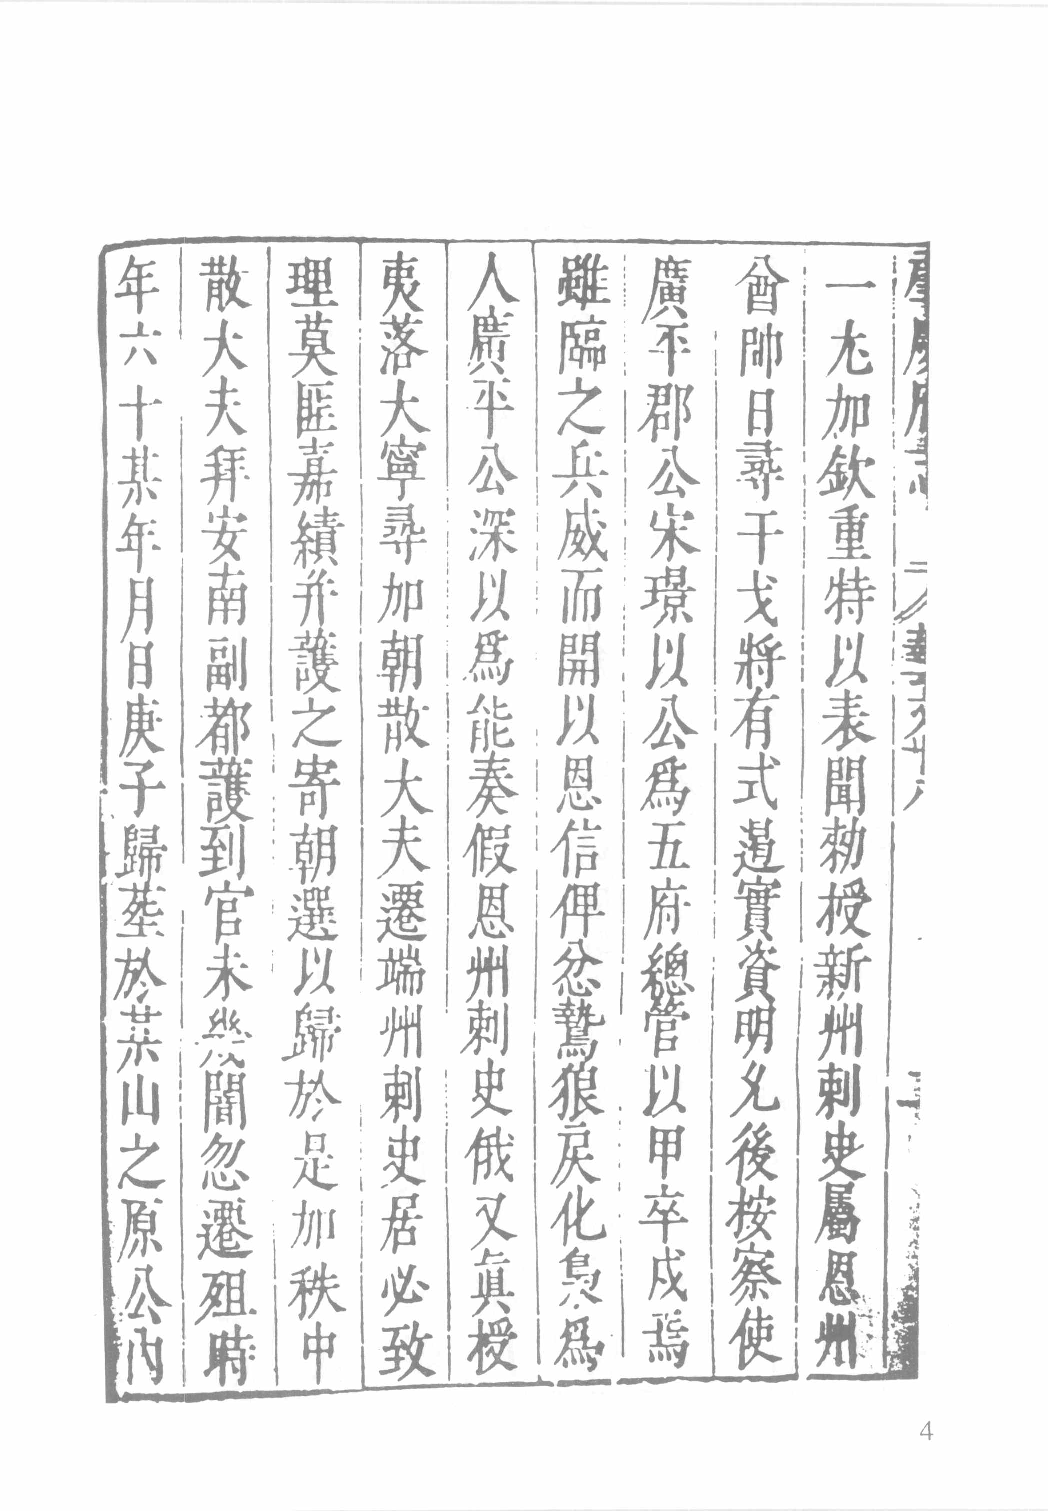 一尤加欽重特以表聞勑授新州刺史屬恩州
酋帥日尋干戈將有式遏實資明允後按察使
廣平郡公宋璟以公爲五府總管以甲卒戍焉
雖臨之兵威而開以恩信俾忿鷙狼戾化梟爲
人廣平公深以爲能奏假恩州刺史俄又眞授
夷落大寧尋加朝散大夫遷端州刺史居必致
理莫匪嘉績并護之寄朝選以歸於是加秩中
散大夫拜安南副都護到官未幾闇忽遷殂時
年六十某年月日庚子歸塟於某山之原公內
4